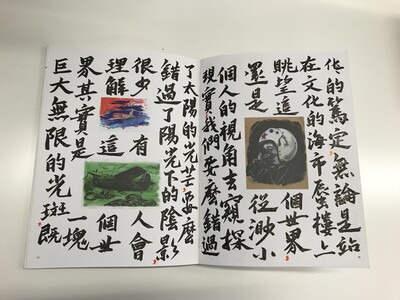 化的篤定,無論是站
在文化的海市蜃樓上
眺望這個世界,
還是從渺小
個人的視角去窺探
現實,我們要麼錯過
了太陽的光芒,要麼
錯過了陽光下的陰影
很少有人會
理解這個世
界其實是一塊
巨大無限的光斑,既